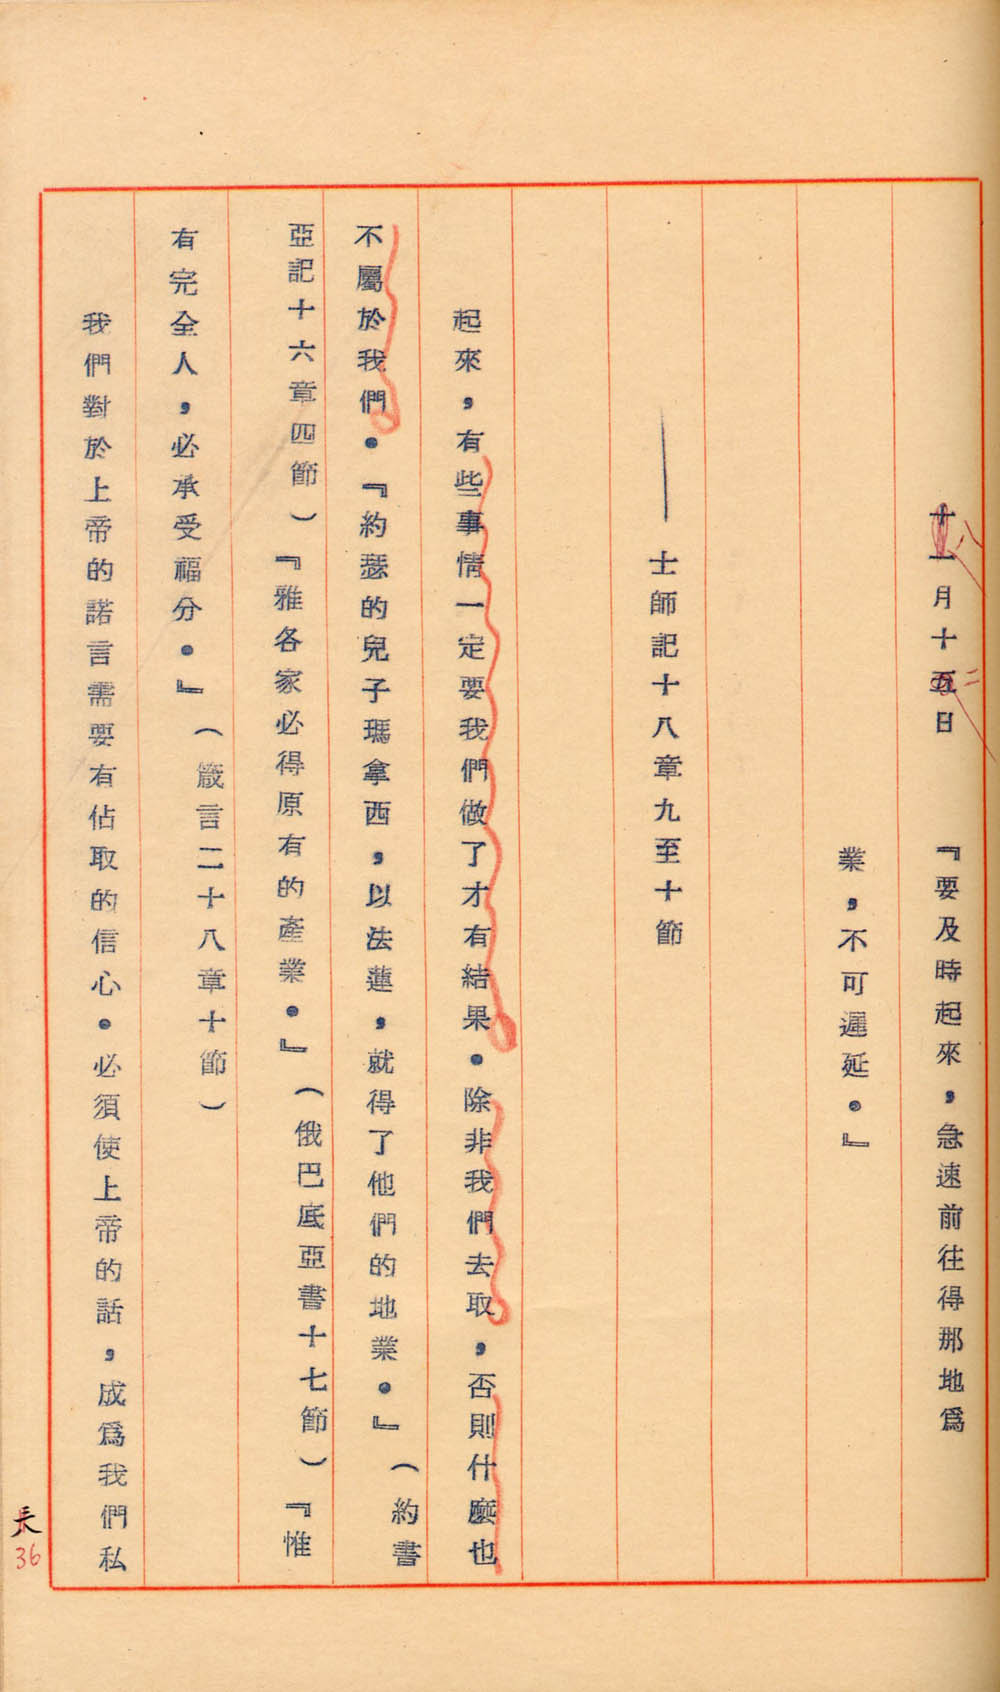 十一月十五日 『要及時起來，急速前往得那地爲
八
二
業，不可遲延。』
——士師記十八章九至十節
起來，有些事情一定要我們做了才有結果。除非我們去取，否則什麼也
不屬於我們。『約瑟的兒子瑪拿西，以法蓮，就得了他們的地業。』（約書
亞記十六章四節）『雅各家必得原有的產業。』（俄巴底亞書十七節）『惟
有完全人，必承受福分。』（箴言二十八章十節）
我們對於上帝的諾言需要有佔取的信心。必須使上帝的話，成爲我們私
長
36